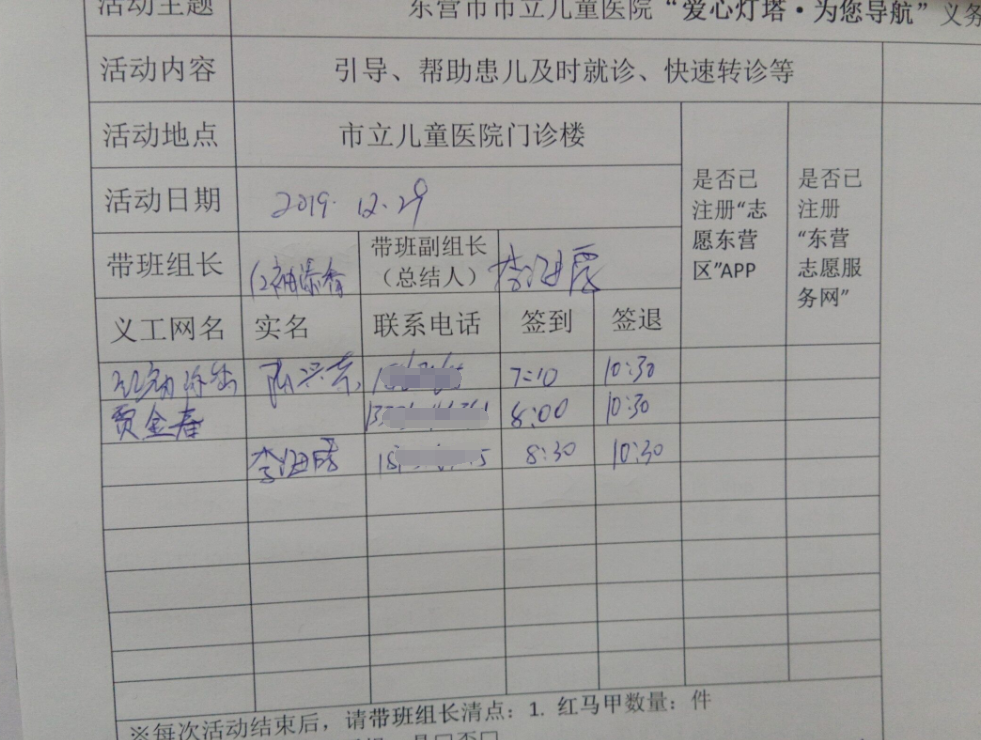 活动主题 东营市市立儿童医院“爱心灯塔·为您导航”义务
活动内容 引导、帮助患儿及时就诊、快速转诊等
活动地点 市立儿童医院门诊楼
活动日期 2019.12.29
是否已注册“志愿东营区”APP
是否已注册“东营志愿服务网”
带班组长 红袖添香 带班副组长(总结人) 李海霞
义工网名 实名 联系电话 签到 签退
7:10 10:30
贾金春 8:00 10:30
李海 8:30 10:30
※每次活动结束后,请带班组长清点:1. 红马甲数量: 件